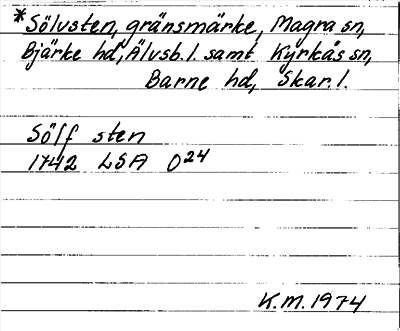 *Sölvsten, gränsmärke, Magra sn,
Bjärke hd, Älvsb.l. samt Kyrkås sn,
Barne hd, Skar.l.
Sölf sten
1742 LSA O24
K.M.1974